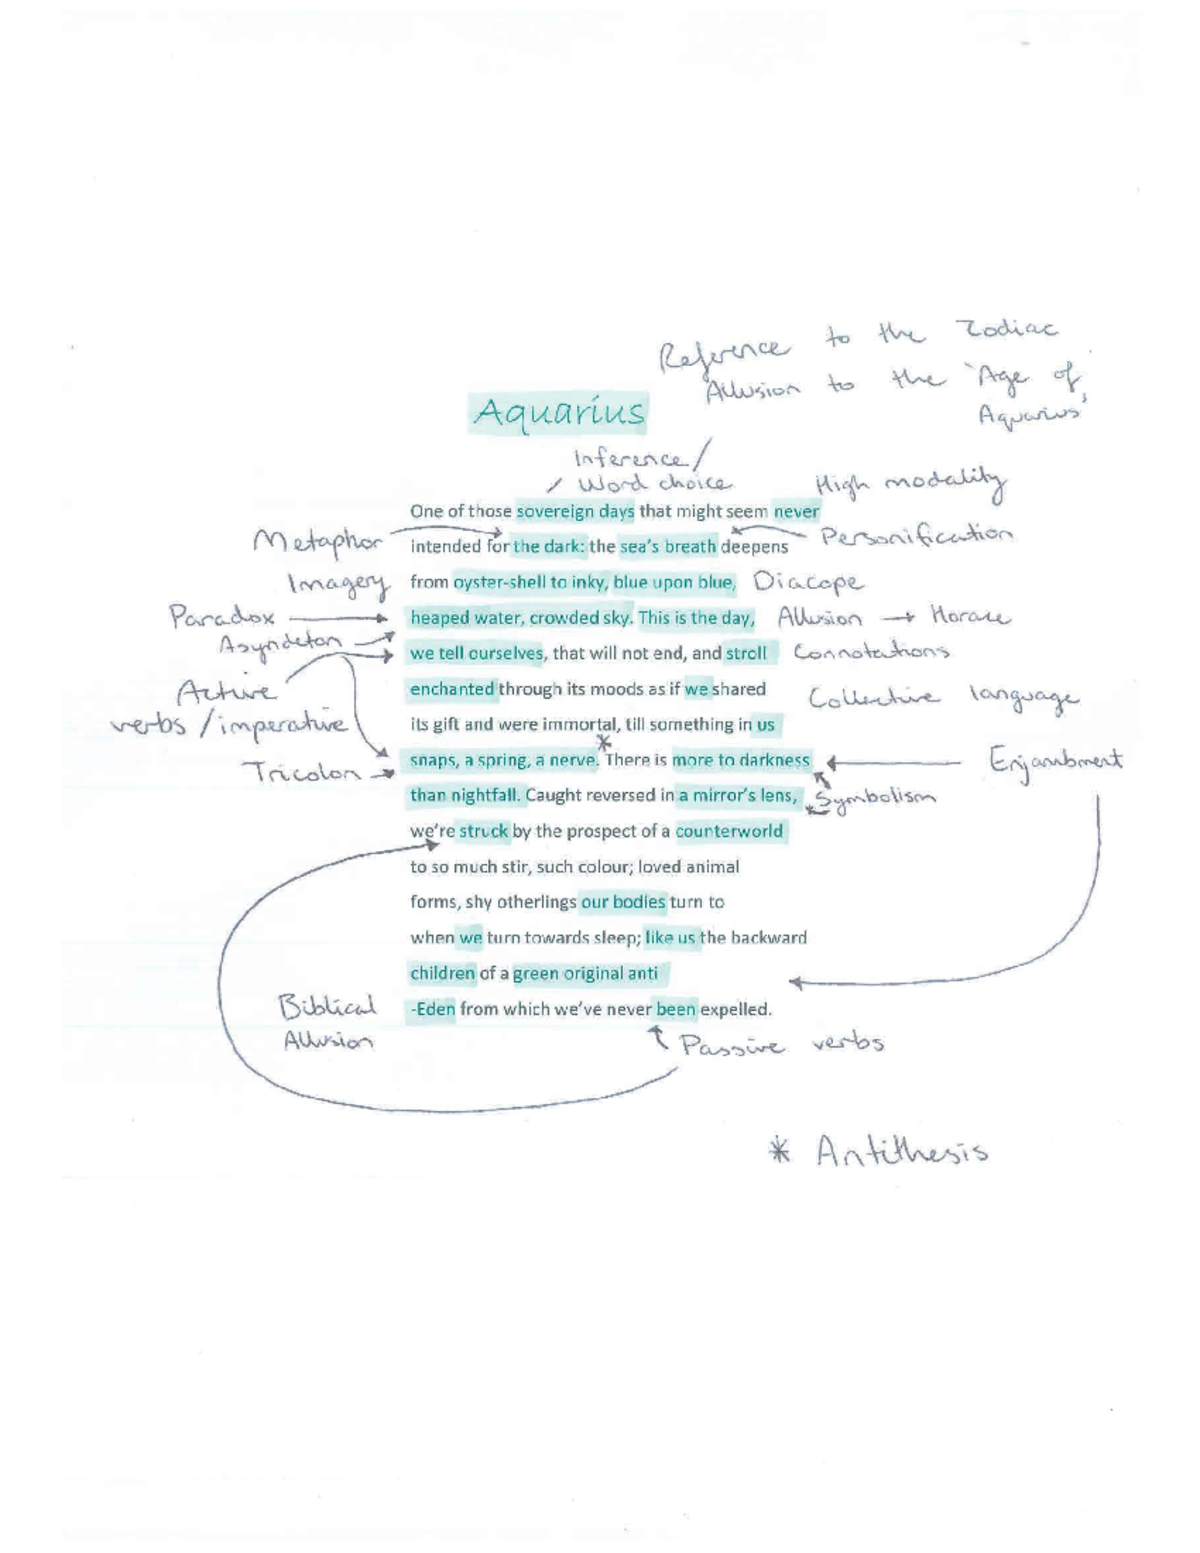 Reference to the Zodiac
Allusion to the 'Age of
Aquarius'
Aquarius
Inference/
/ Word choice
High modality
One of those sovereign days that might seem never
Metaphor
intended for the dark: the sea's breath deepens
Personification
Imagery
from oyster-shell to inky, blue upon blue,
Diacope
Paradox
heaped water, crowded sky. This is the day,
Allusion → Horace
Asyndeton
we tell ourselves, that will not end, and stroll
Connotations
Active
verbs / imperative
enchanted through its moods as if we shared
Collective language
its gift and were immortal, till something in us
*
Tricolon
snaps, a spring, a nerve. There is more to darkness
Enjambment
than nightfall. Caught reversed in a mirror's lens,
Symbolism
we're struck by the prospect of a counterworld
to so much stir, such colour; loved animal
forms, shy otherlings our bodies turn to
when we turn towards sleep; like us the backward
children of a green original anti
Biblical
Allusion
-Eden from which we've never been expelled.
Passive verbs
* Antithesis